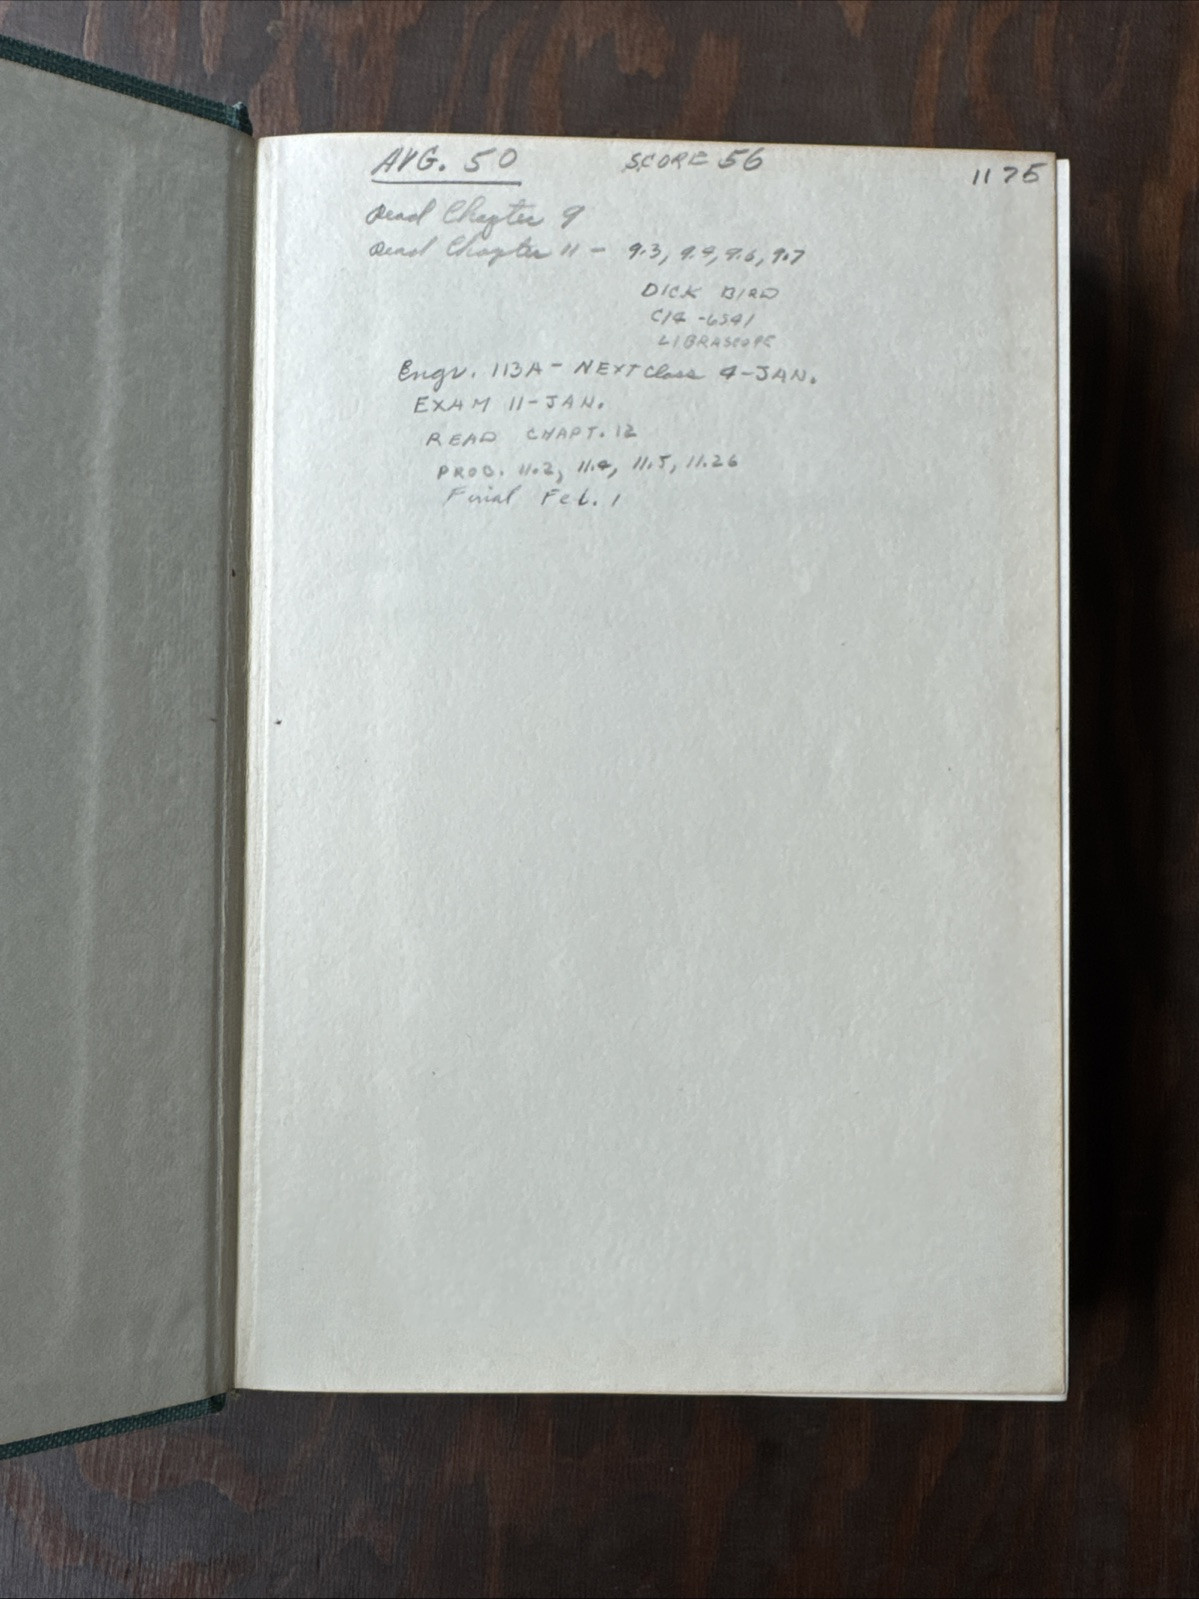 AVG. 50 SCORE 56 1175
Read Chapter 9
Read Chapter 11 - 9.3, 9.4, 9.6, 9.7
DICK BIRD
CI4-6541
LIBRASCOPE
Engr. 113A - NEXT Class 4-JAN.
EXAM 11-JAN.
READ CHAPT. 12
PROB. 11.2, 11.4, 11.5, 11.26
Final Feb. 1